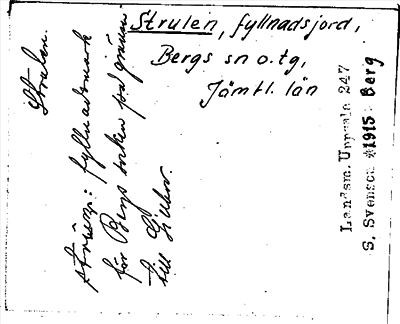 Strulen, fyllnadsjord,
Bergs sn o. tg,
Jämtl. län
Strulen.
fyllnadsmark
för Bergs socken på gränsen
till
Landsm. Uppsala 247
S. Svensson 1915 Berg